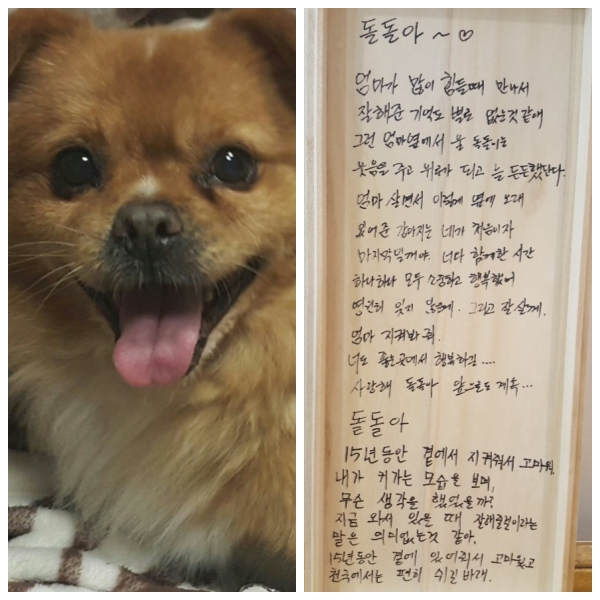 돌돌아 ~ ♡
엄마가 많이 힘들때 만나서
잘해준 기억도 별로 없는것 같애
그런 엄마옆에서 울 돌돌이는
웃음을 주고 위로가 되고 늘 든든했단다.
엄마 살면서 이렇게 옆에 오래
있어준 강아지는 네가 처음이자
마지막일꺼야. 너와 함께한 시간
하나하나 모두 소중하고 행복했어
영원히 잊지 않을게. 그리고 잘살게.
엄마 지켜봐줘.
너도 좋은곳에서 행복하길....
사랑해 돌돌아 앞으로도 계속...
돌돌아
15년동안 곁에서 지켜줘서 고마워.
내가 커가는 모습을 보며,
무슨 생각을 했었을까?
지금 와서 있을 때 잘해줄걸이라는
말은 의미없는것 같아.
15년동안 곁에 있어줘서 고마웠고
천국에서는 편히 쉬길 바래.